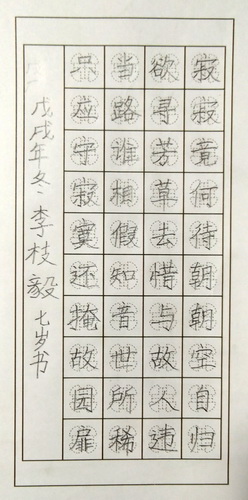 寂寂竟何待朝朝空自归
欲寻芳草去惜与故人违
当路谁相假知音世所稀
只应守寂寞还掩故园扉
戊戌年冬李枝毅七岁书